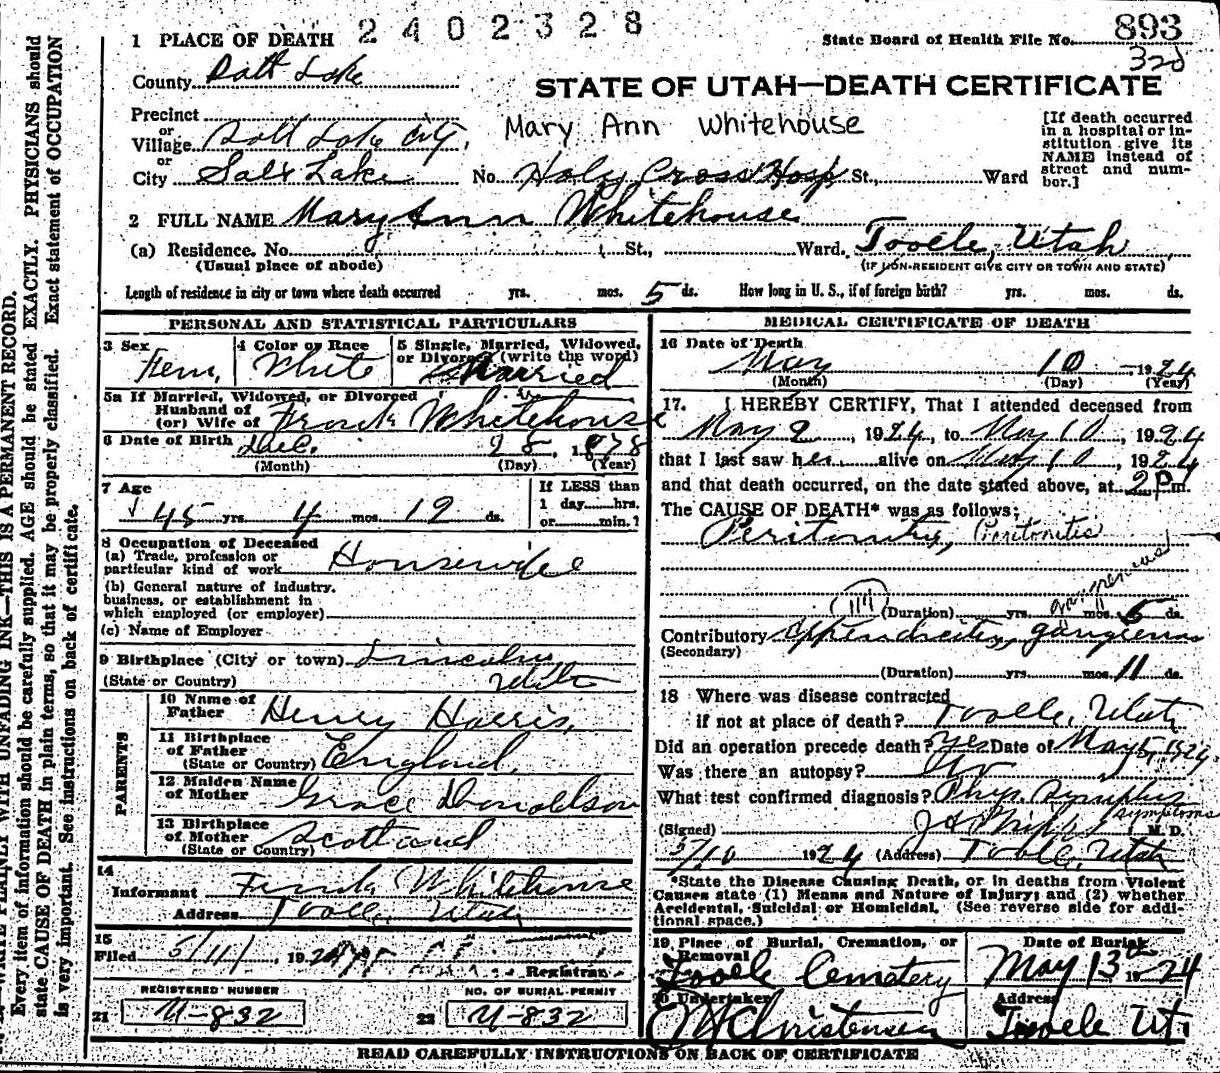 2402328
893
32d
1 PLACE OF DEATH
State Board of Health File No.
County Salt Lake
STATE OF UTAH—DEATH CERTIFICATE
Precinct
or
Village Salt Lake City,
or
City Salt Lake No. Holy Cross Hosp St., Ward
Mary Ann Whitehouse
[If death occurred in a hospital or institution give its NAME instead of street and number.]
2 FULL NAME Mary Ann Whitehouse
(a) Residence, No. St., Ward. Tooele, Utah
(Usual place of abode) (IF NON-RESIDENT GIVE CITY OR TOWN AND STATE)
Length of residence in city or town where death occurred yrs. mos. 5 ds. How long in U. S., if of foreign birth? yrs. mos. ds.
PERSONAL AND STATISTICAL PARTICULARS
3 Sex Fem.
4 Color or Race White
5 Single, Married, Widowed, or Divorced (write the word) Married
5a If Married, Widowed, or Divorced
Husband of
(or) Wife of Frank Whitehouse
6 Date of Birth Dec. 28, 1878
(Month) (Day) (Year)
7 Age 45 yrs. 4 mos. 12 ds.
If LESS than
1 day hrs.
or min.?
8 Occupation of Deceased
(a) Trade, profession or
particular kind of work Housewife
(b) General nature of industry,
business, or establishment in
which employed (or employer)
(c) Name of Employer
9 Birthplace (City or town) Lincoln
(State or Country) Utah
PARENTS
10 Name of Father Henry Harris,
11 Birthplace of Father
(State or Country) England.
12 Maiden Name of Mother Grace Donaldson
13 Birthplace of Mother
(State or Country) Scotland
14
Informant Frank Whitehouse
Address Tooele, Utah
15
Filed 5/11/, 1924
Registrar
REGISTERED NUMBER NO. OF BURIAL PERMIT
21 U-832 22 U-832
MEDICAL CERTIFICATE OF DEATH
16 Date of Death
May 10 1924
(Month) (Day) (Year)
17. I HEREBY CERTIFY, That I attended deceased from
May 2, 1924, to May 10, 1924
that I last saw her alive on May 10, 1924
and that death occurred, on the date stated above, at 2 P m.
The CAUSE OF DEATH* was as follows:
Peritonitis, Peritonitis
gangrenous
(Duration) yrs. mos. 5 ds.
Contributory Appendicitis, gangrenous
(Secondary)
(Duration) yrs. mos. 11 ds.
18 Where was disease contracted
if not at place of death? Tooele, Utah
Did an operation precede death? Yes Date of May 5, 1924
Was there an autopsy? No
What test confirmed diagnosis? Phys. Symptoms
symptoms
(Signed) M. D.
5/10 1924 (Address) Tooele, Utah
*State the Disease Causing Death, or in deaths from Violent
Causes state (1) Means and Nature of Injury; and (2) whether
Accidental, Suicidal or Homicidal. (See reverse side for additional space.)
19 Place of Burial, Cremation, or Removal
Tooele Cemetery
Date of Burial
May 13th 1924
20 Undertaker
Christensen
Address
Tooele Ut.
READ CAREFULLY INSTRUCTIONS ON BACK OF CERTIFICATE
WRITE PLAINLY WITH UNFADING INK—THIS IS A PERMANENT RECORD.
Every item of information should be carefully supplied. AGE should be stated EXACTLY. PHYSICIANS should
state CAUSE OF DEATH in plain terms, so that it may be properly classified. Exact statement of OCCUPATION
is very important. See instructions on back of certificate.